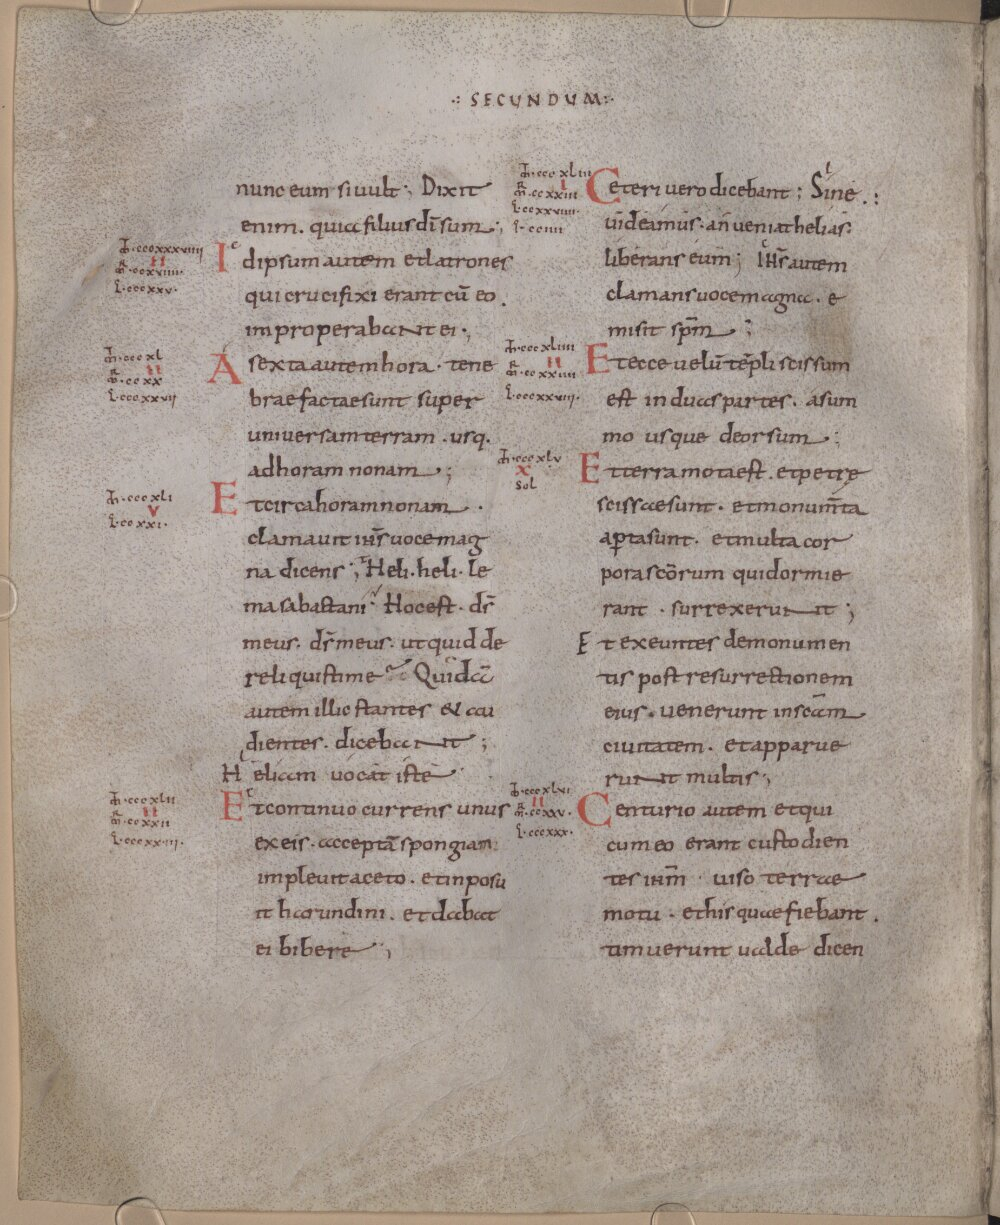 ·: SECUNDUM :·
nunc eum si uult ; Dixit
enim . quia filius dī sum ;
·cccxxxviiii
II
·ccxviiii·
·cccxxv·
Id ipsum autem et latrones
qui crucifixi erant cū eo .
improperabant ei ·,
·cccxl
II
·ccxx
·cccxxvii
A sexta autem hora · tene
brae factae sunt super
universam terram · usq.
ad horam nonam ;
·cccxli
V
·ccxxi·
Et circa horam nonam .
clamavit ihs̄ voce mag
na dicens ; Heli · heli · le
ma sabactani Hoc est · ds̄
meus · ds̄ meus · ut quid de
reliquisti me Quidā
autem illic stantes & au
dientes . dicebant ;
Heliam vocat iste
·cccxlii
II
·ccxxii
·cccxxiii·
Et continuo currens unus
ex eis · acceptā spongiam
implevit aceto · et inposu
it harundini . et dabat
ei bibere ;
·cccxliii
I
·ccxxiii
·ccxxviiii·
·cciiii
Ceteri vero dicebant ; Sine .:
uideamus · an veniat helias
liberans eum ; Ihs̄ autem
clamans voce magna · e
misit spm̄ ;
·cccxliiii
II
·ccxxiiii
·cccxxviii·
Et ecce uelū tēpli scissum
est in duas partes . a sum
mo usque deorsum ;
·cccxlv
X
Sol
Et terra mota est . et petrę
scissae sunt · et monum̄ta
apta sunt · et multa cor
pora scōrum qui dormie
rant · surrexerunt ;
Et exeuntes de monumen
tis post resurrectionem
eius . venerunt in scām
civitatem . et apparue
runt multis ;
·cccxlvi
II
·ccxxv·
·cccxxx·
Centurio autem et qui
cum eo erant custodien
tes ihm̄ viso terrae
motu · et his quae fiebant .
timuerunt valde dicen